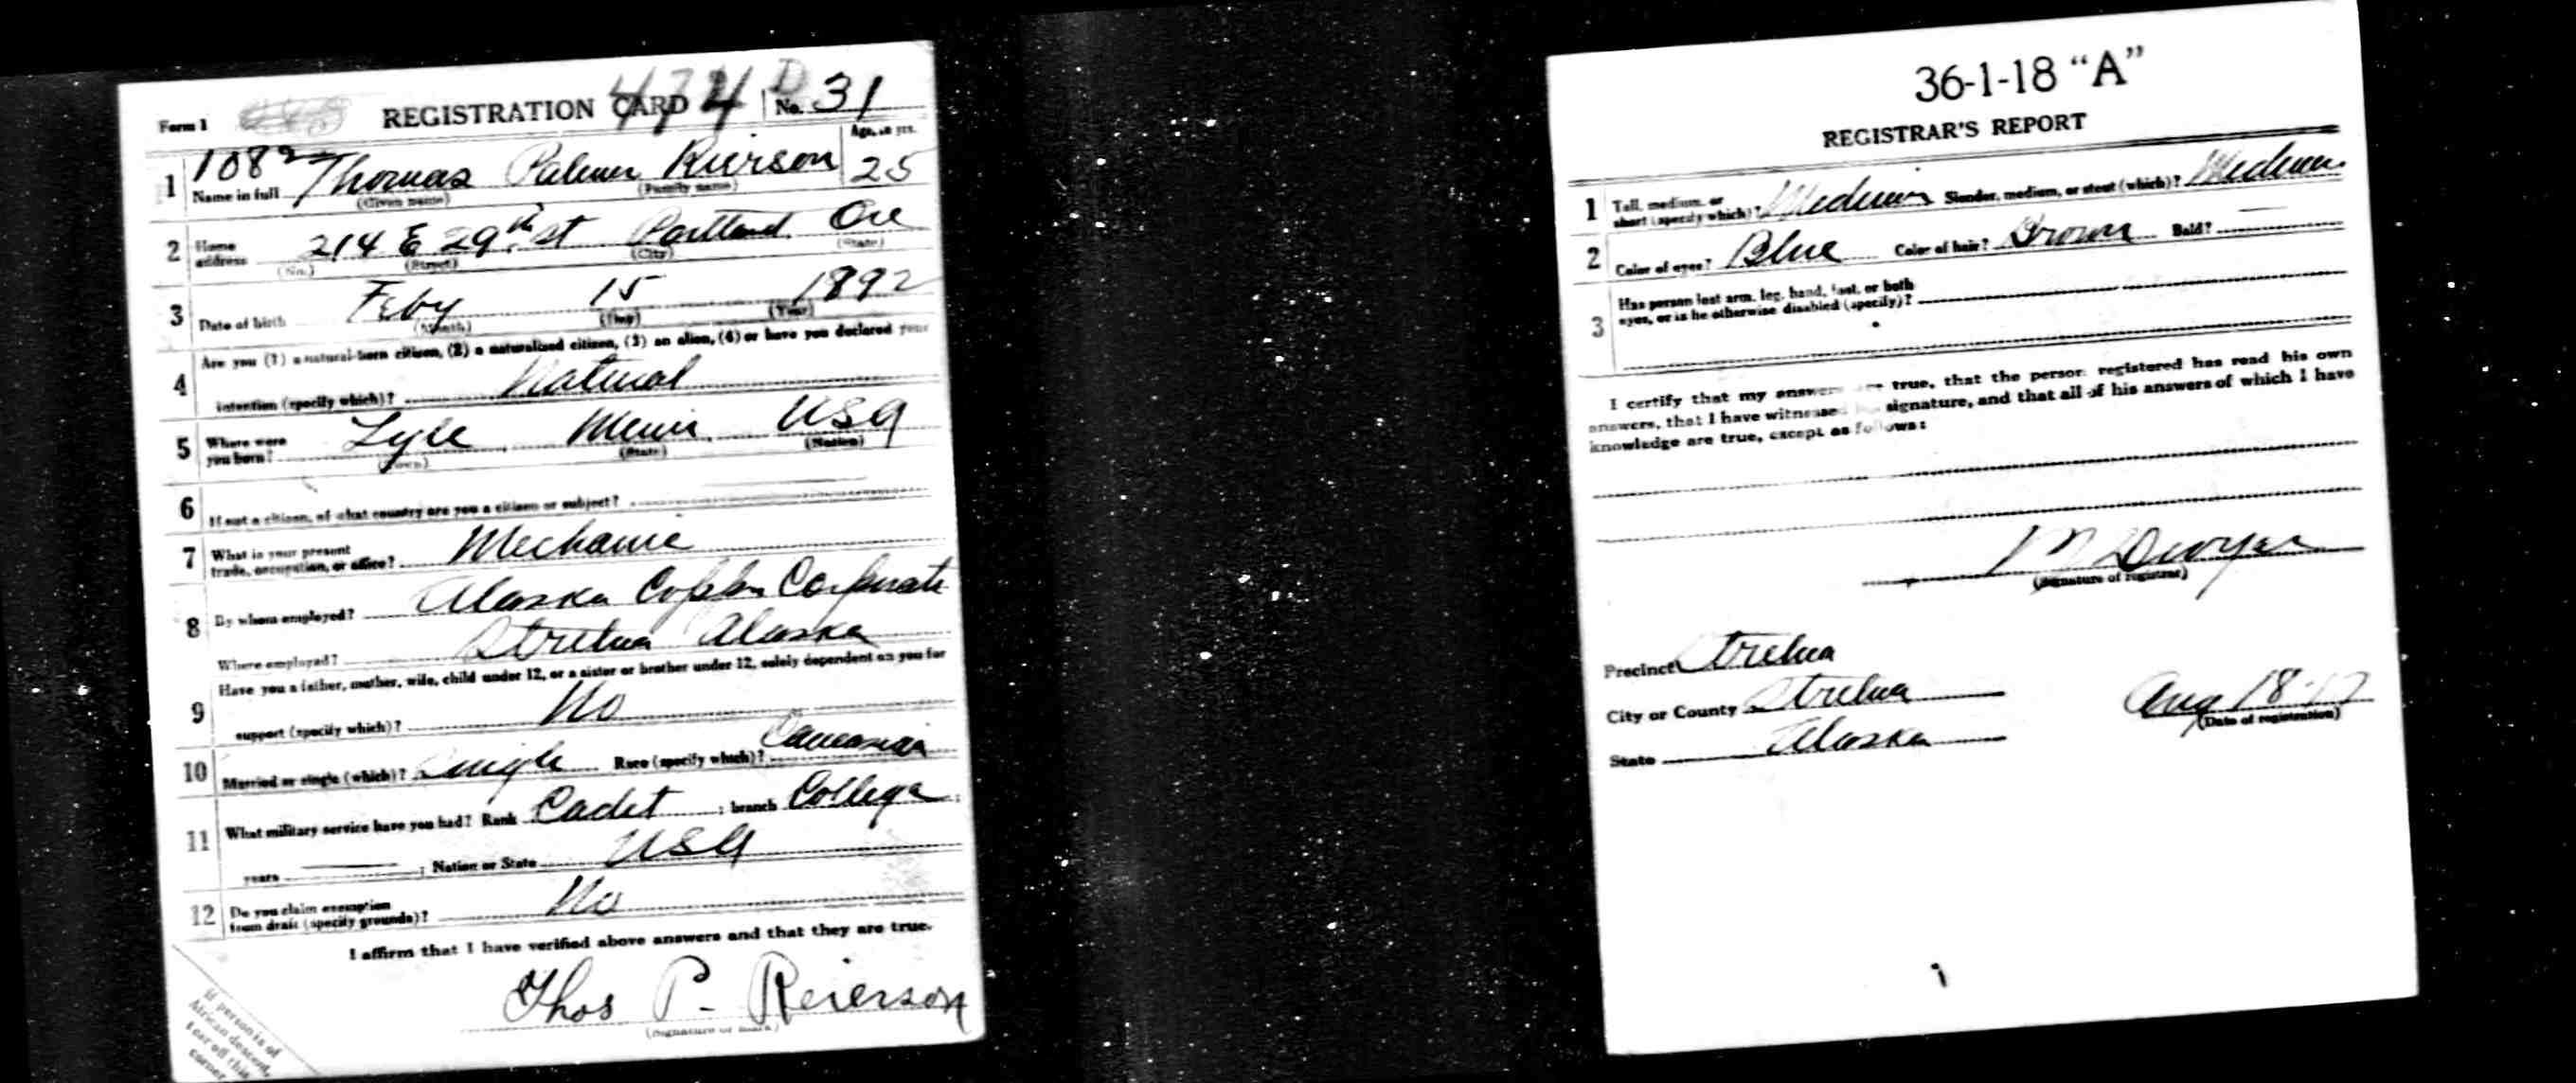 Form 1 REGISTRATION CARD 474 D No. 31
Age, in yrs.
1 108 Name in full Thomas Palmer Rierson 25
(Given name) (Family name)
2 Home address 214 E 29th St Portland Ore
(No.) (Street) (City) (State)
3 Date of birth Feby 15 1892
(Month) (Day) (Year)
4 Are you (1) a natural-born citizen, (2) a naturalized citizen, (3) an alien, (4) or have you declared your
intention (specify which)? Natural
5 Where were you born? Lyle, Minn, USA
(Town) (State) (Nation)
6 If not a citizen, of what country are you a citizen or subject?
7 What is your present trade, occupation, or office? Mechanic
8 By whom employed? Alaska Copper Corporate
Where employed? Strelna Alaska
9 Have you a father, mother, wife, child under 12, or a sister or brother under 12, solely dependent on you for
support (specify which)? No
10 Married or single (which)? Single Race (specify which)? Caucasian
11 What military service have you had? Rank Cadet ; branch College ;
years ; Nation or State USA
12 Do you claim exemption from draft (specify grounds)? No
I affirm that I have verified above answers and that they are true.
Thos P. Reierson
(Signature or mark)
If person is of
African descent,
tear off this
corner
36-1-18 "A"
REGISTRAR'S REPORT
1 Tall, medium, or short (specify which)? Medium Slender, medium, or stout (which)? Medium
2 Color of eyes? Blue Color of hair? Brown Bald?
3 Has person lost arm, leg, hand, foot, or both
eyes, or is he otherwise disabled (specify)?
I certify that my answers are true, that the person registered has read his own
answers, that I have witnessed signature, and that all of his answers of which I have
knowledge are true, except as follows:
M Dwyer
(Signature of registrar)
Precinct Strelna
City or County Strelna Aug 18-17
State Alaska (Date of registration)